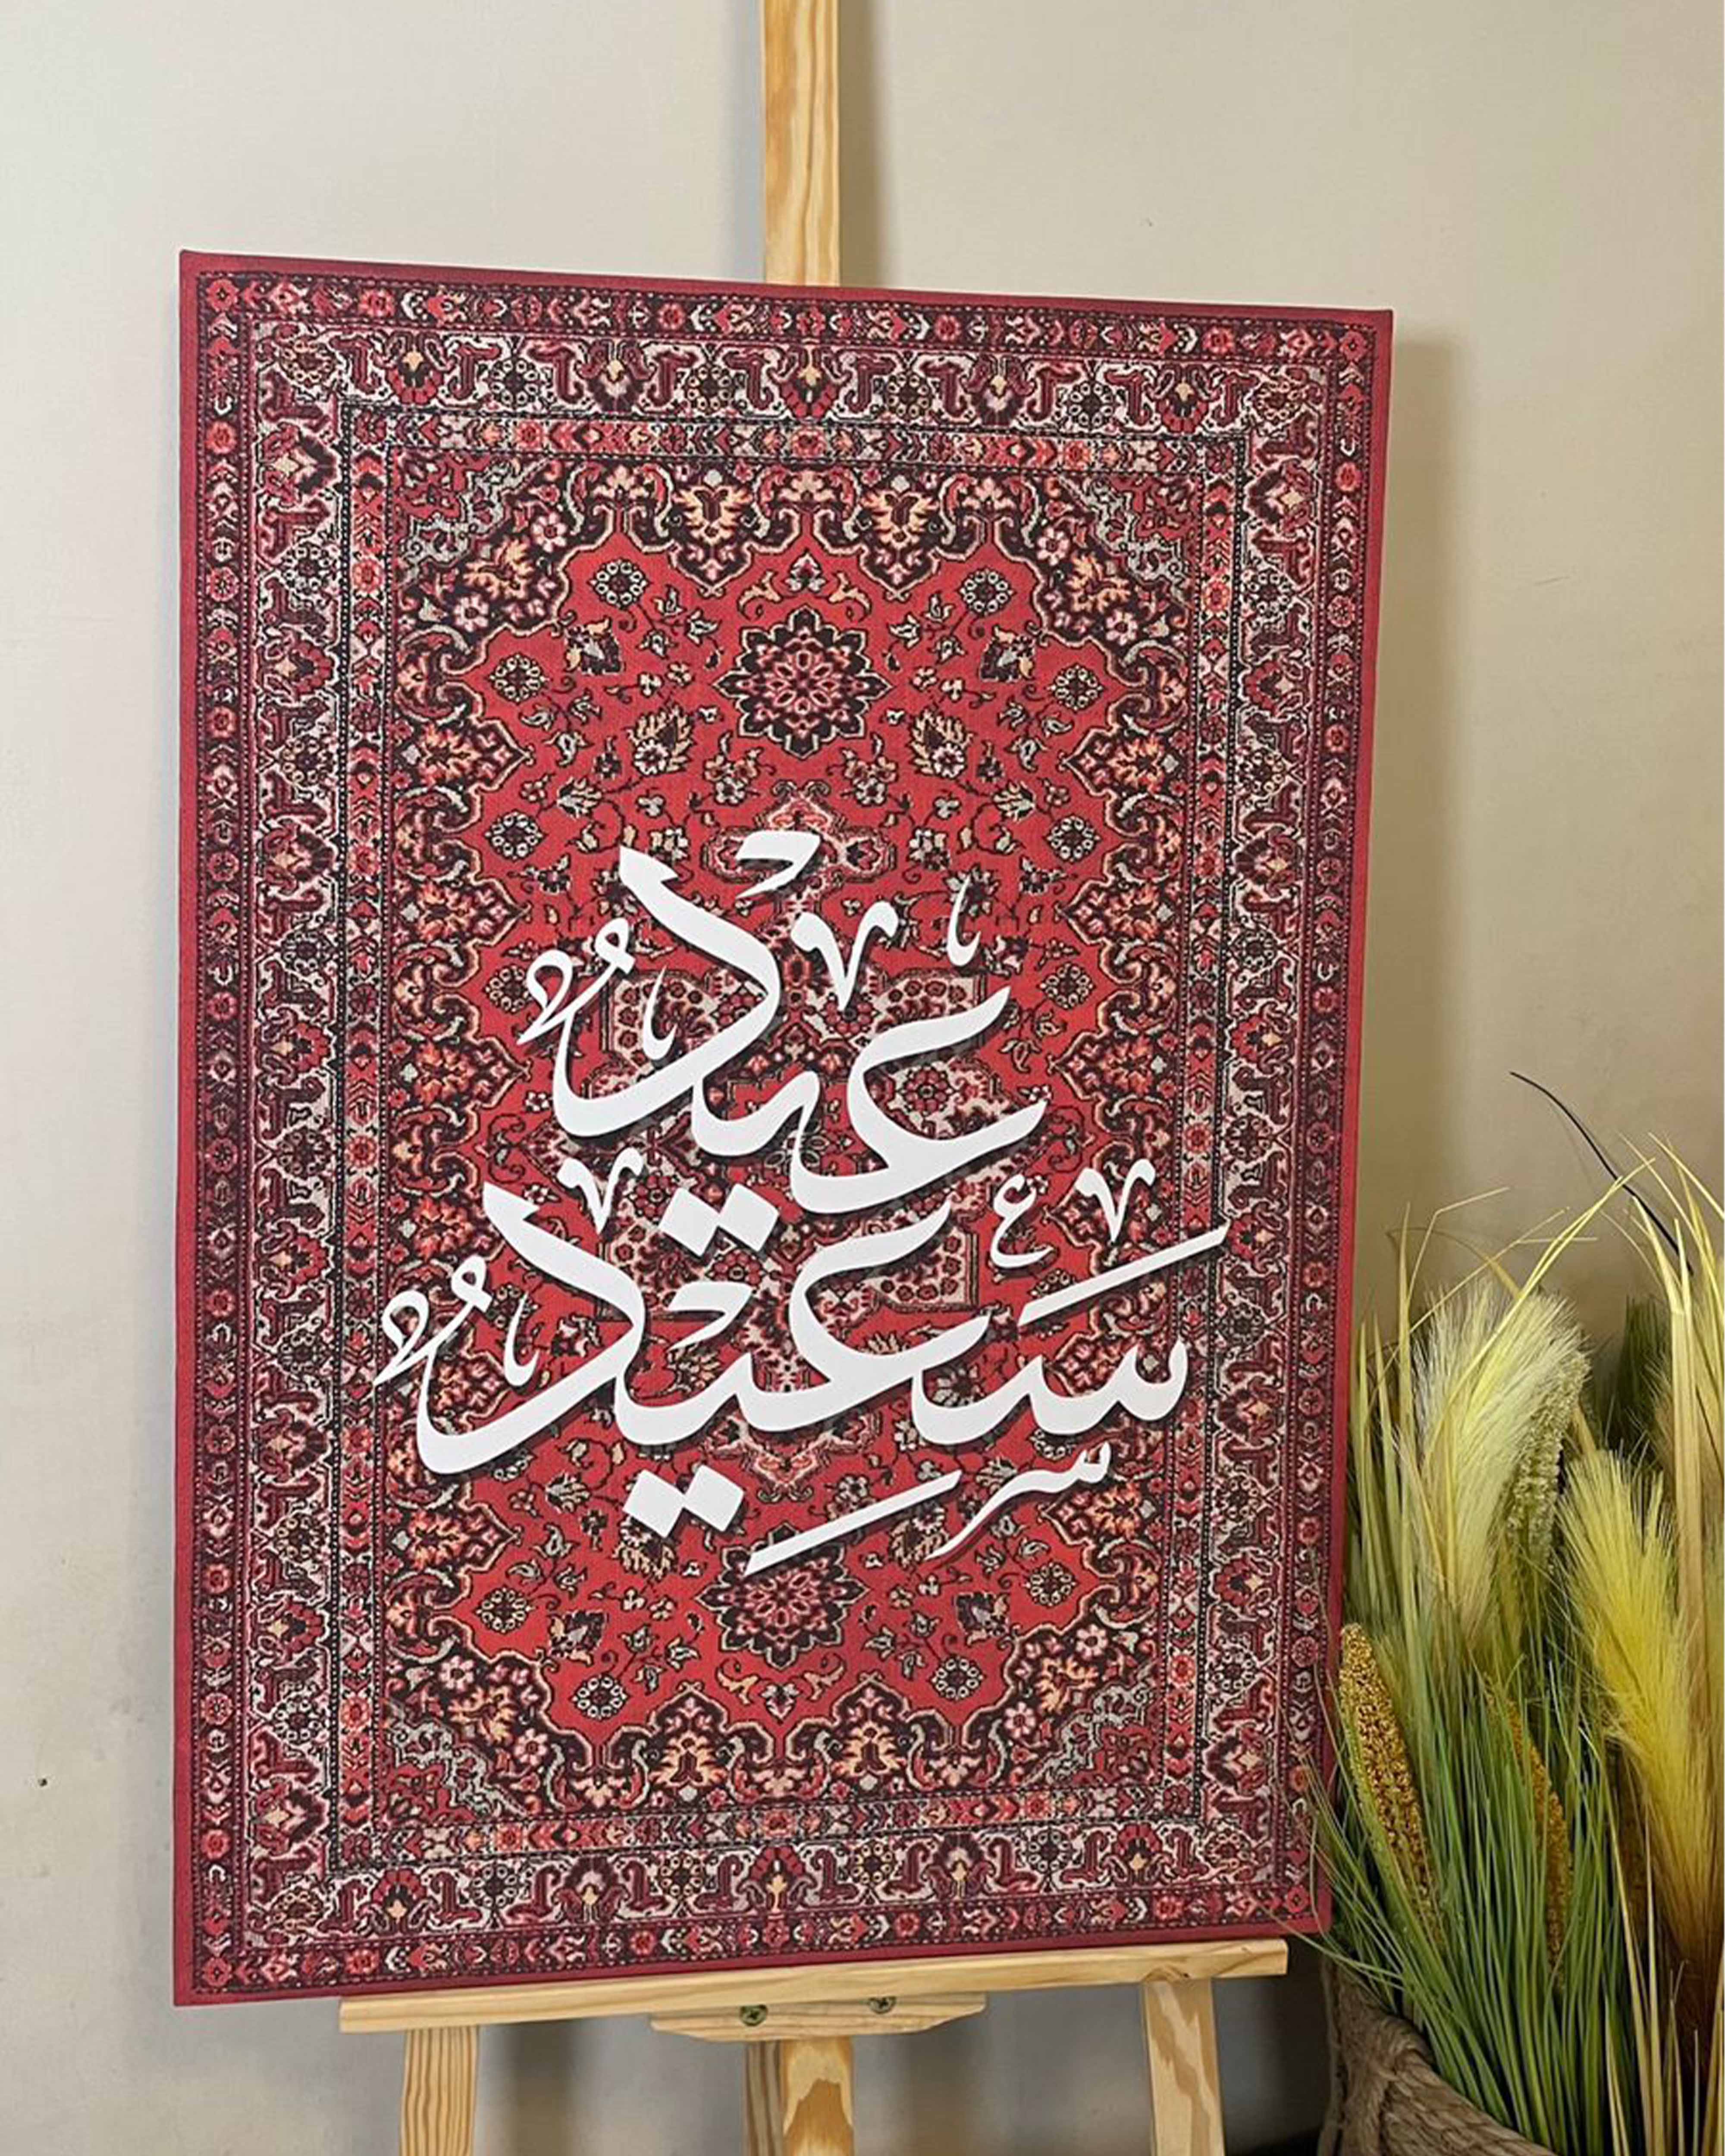 عيدٌ
سَعيدٌ